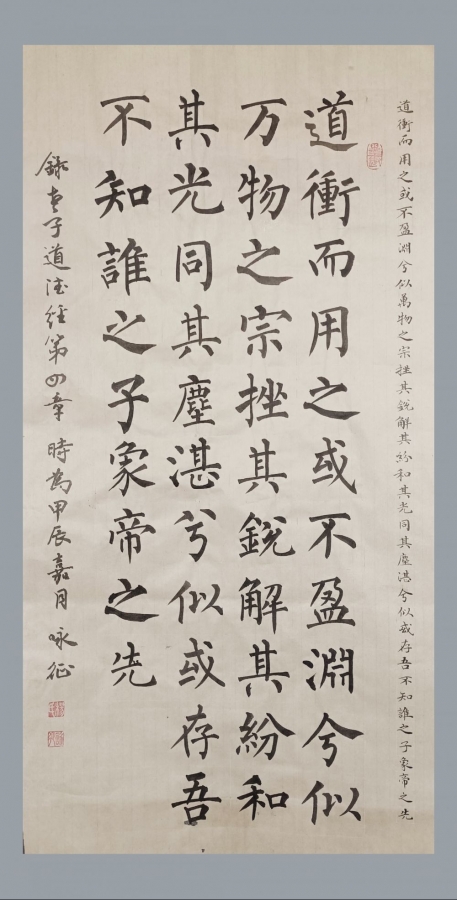 道衝而用之或不盈淵兮似萬物之宗挫其銳解其紛和其光同其塵湛兮似或存吾不知誰之子象帝之先
道衝而用之或不盈淵兮似
万物之宗挫其銳解其紛和
其光同其塵湛兮似或存吾
不知誰之子象帝之先
錄老子道德經第四章 時為甲辰嘉月 咏征